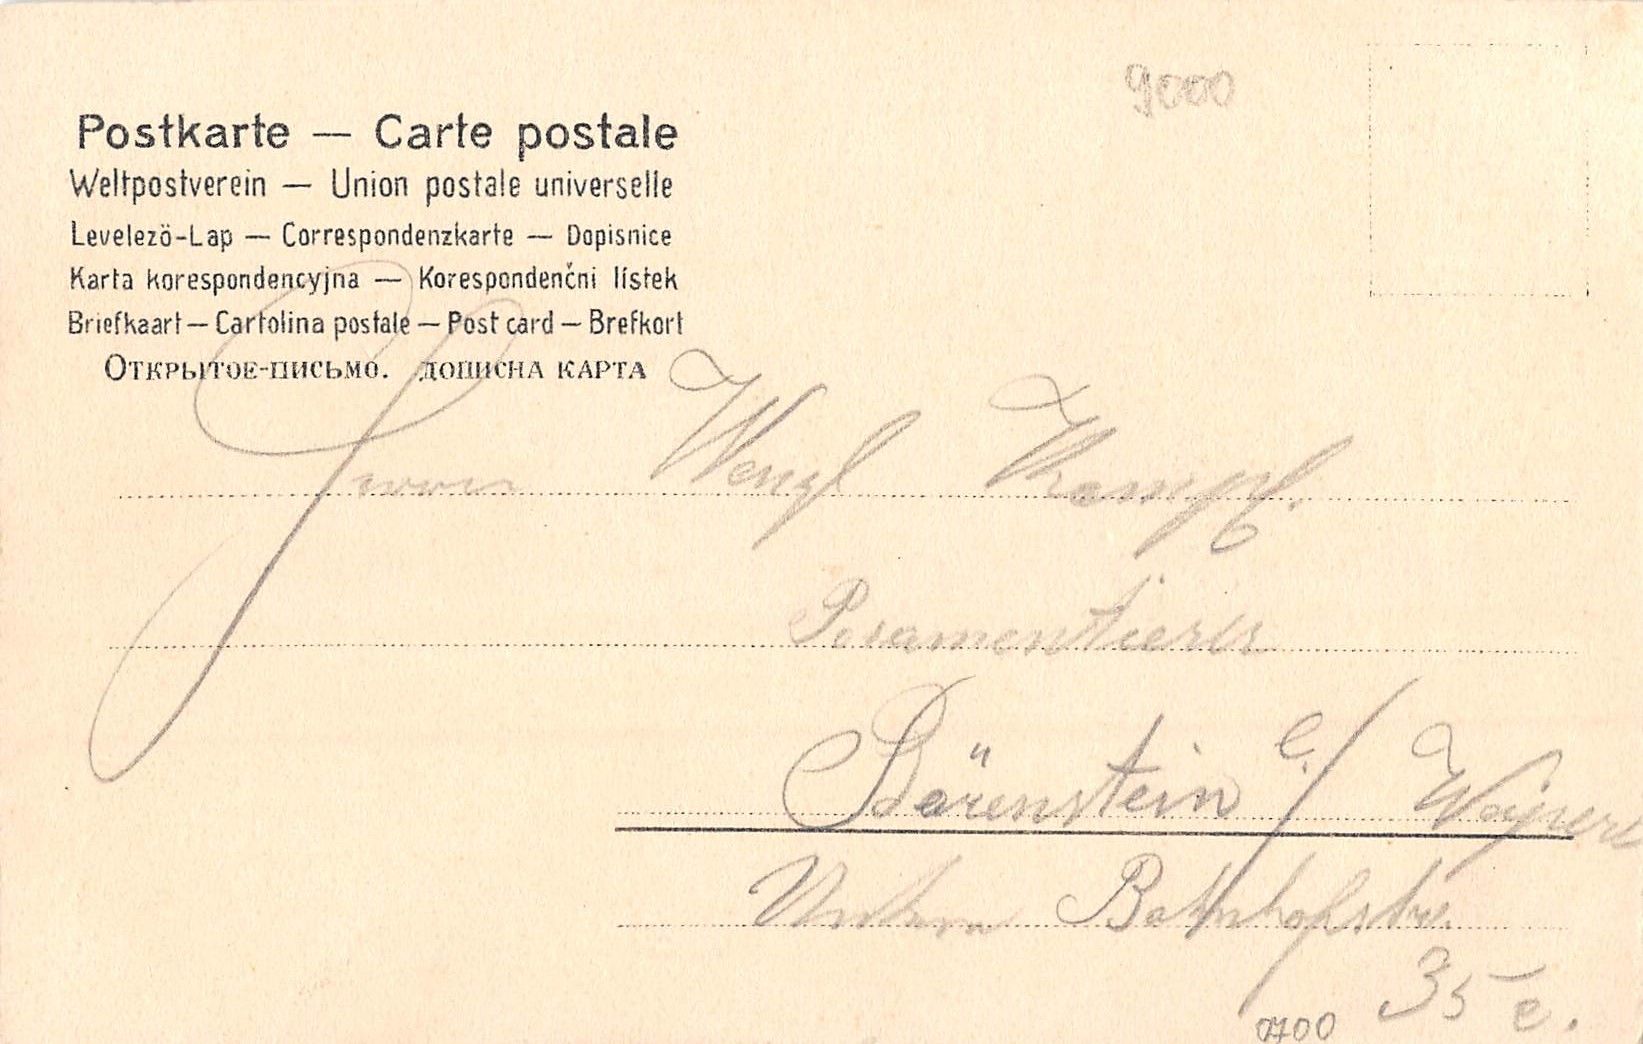 9000
Postkarte — Carte postale
Weltpostverein — Union postale universelle
Levelező-Lap — Correspondenzkarte — Dopisnice
Karta korespondencyjna — Korespondenčni lístek
Briefkaart — Cartolina postale — Post card — Brefkort
Открытое-письмо. дописна карта
Herrn Wenzl
Posamentiers
Bärenstein e./ Weipers
Bahnhofstr.
35 e.